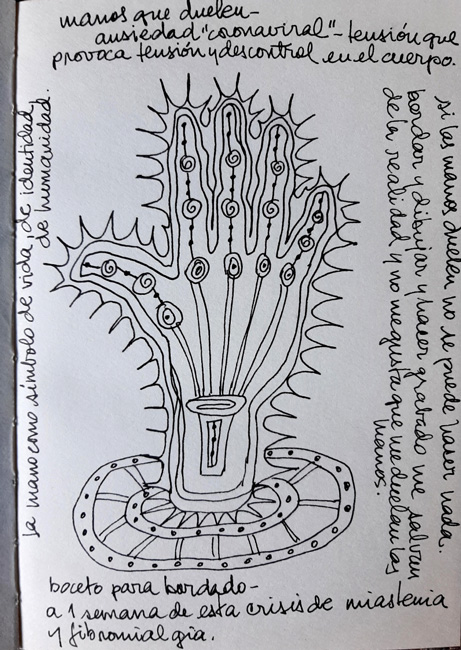 manos que duelen-
ansiedad "coronaviral"- tensión que
provoca tensión y descontrol en el cuerpo.
la mano como símbolo de vida, de identidad,
de humanidad.
si las manos duelen no se puede hacer nada.
bordar y dibujar y hacer grabado me salvan
de la realidad y no me gusta que me duelan las
manos.
boceto para bordado-
a 1 semana de esta crisis de miastenia
y fibromialgia.